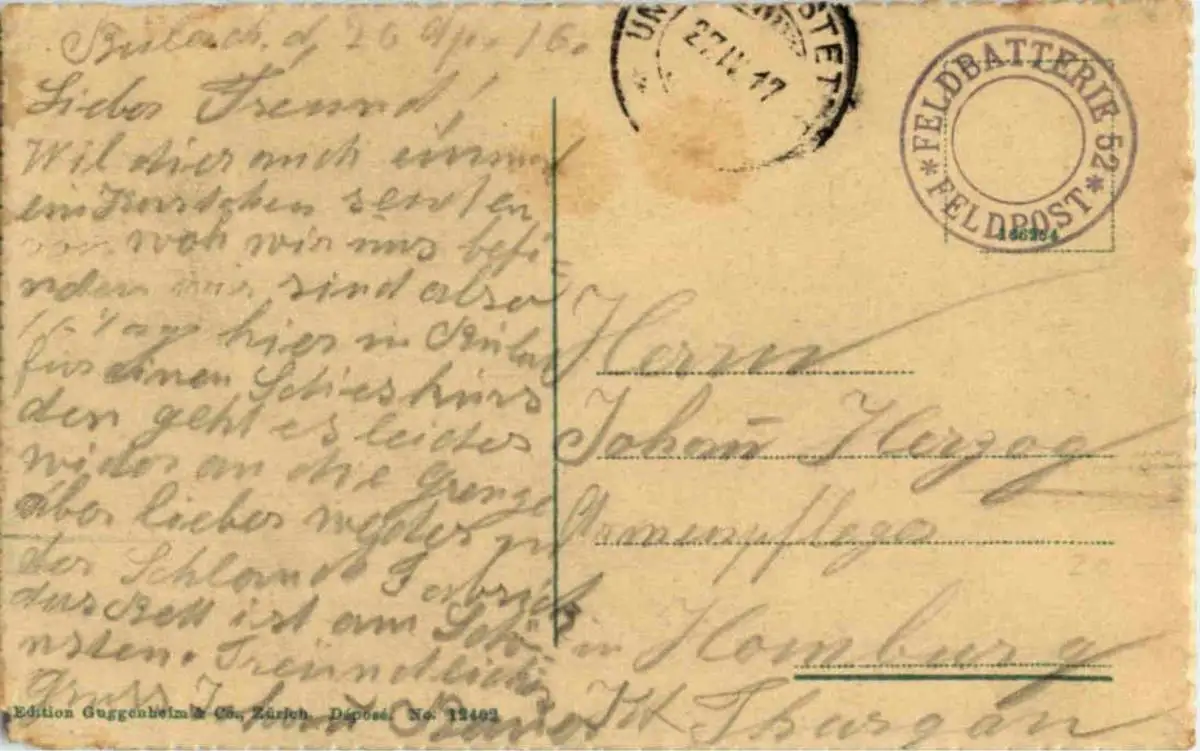 Bülach, d, 26 Apr 16.
Lieber Freund!
Wil dier auch einmal
ein Kärtchen senden
woh wir uns befi-
nden wir sind also
Tage hier in Bülach
für einen Schieskurs
den geht es leider
wider an die Grenze
aber lieber weder zu
der
das Bett ist am Schö-
nsten. Freundlicher
Gruss
UN STET
27.IV.17
*FELDBATTERIE 52*
FELDPOST
186254
Herrn
Johañ Herzog
Armenpfleger
in Homburg
Kt Thurgau
Edition Guggenheim & Co., Zürich Déposé. No. 12402